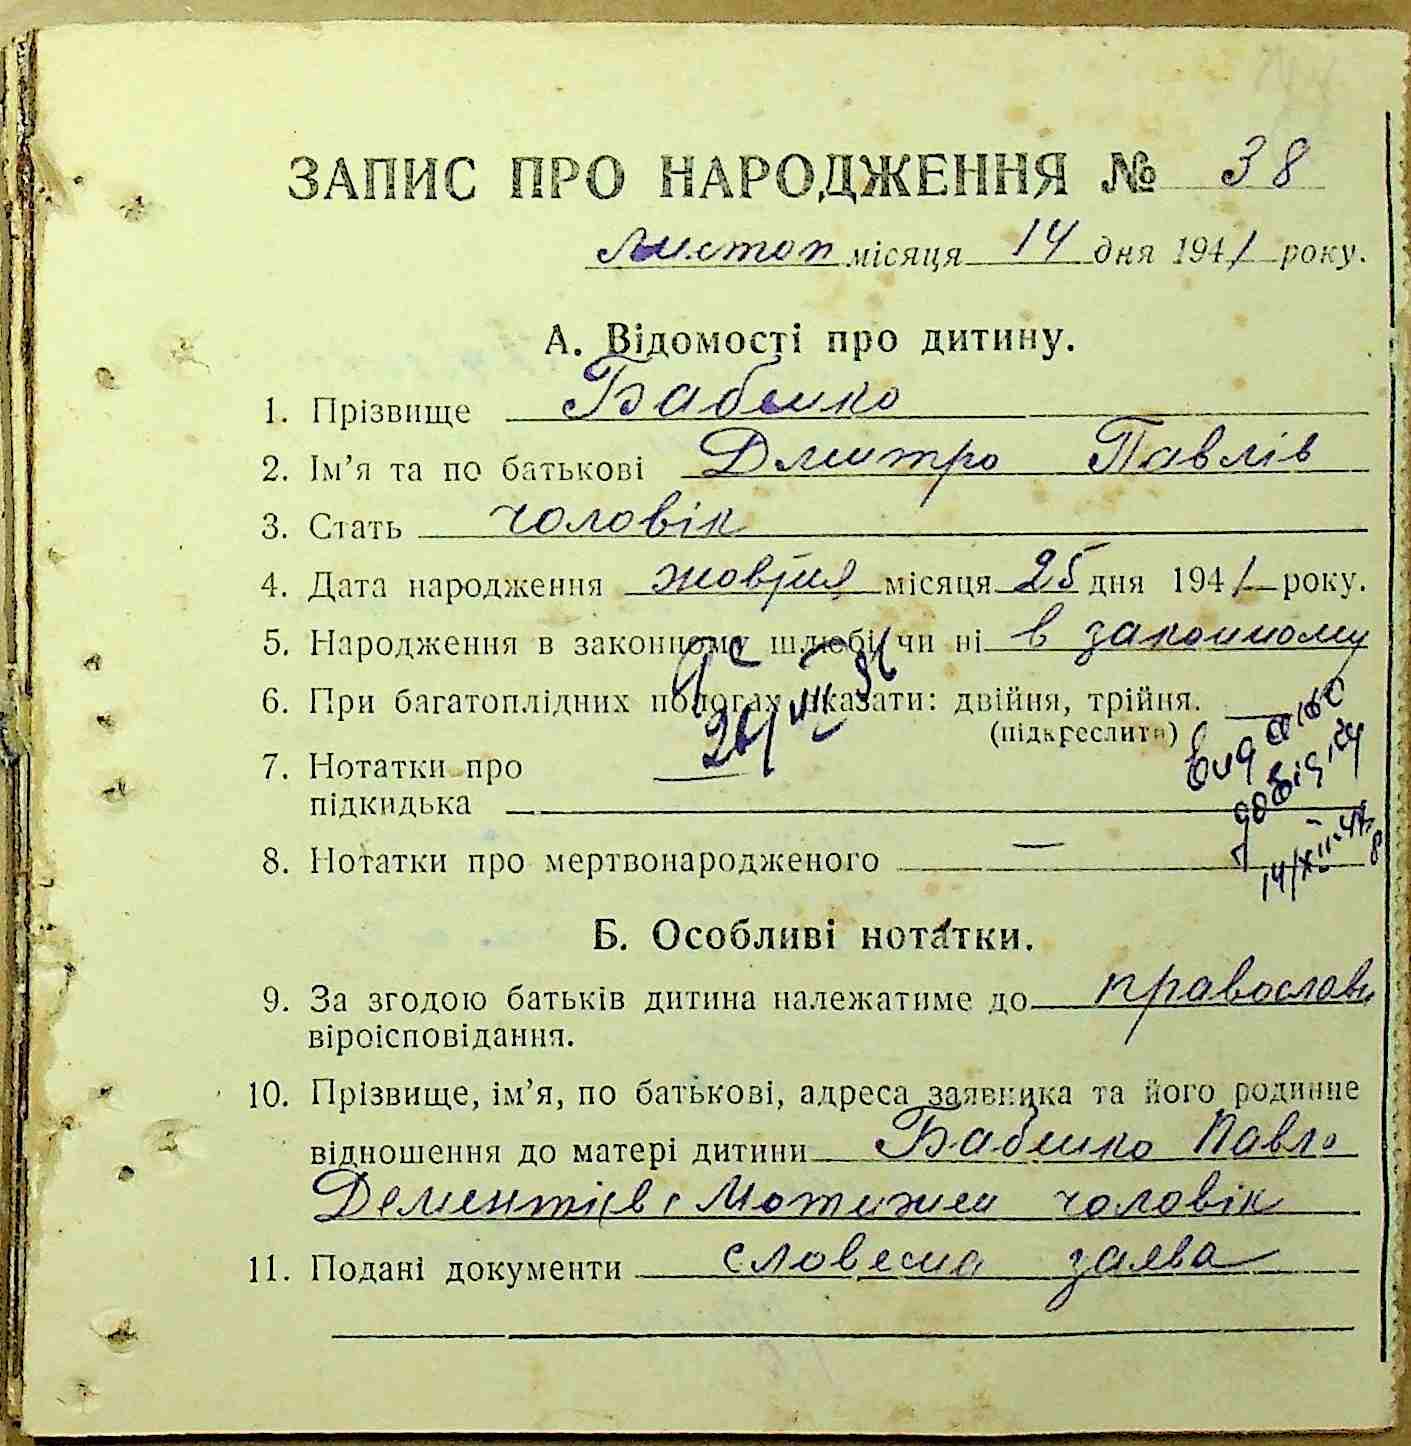 ЗАПИС ПРО НАРОДЖЕННЯ № 38
Листоп місяця 14 дня 1941 року.
А. Відомості про дитину.
1. Прізвище Бабенко
2. Ім'я та по батькові Дмитро Павлів
3. Стать чоловік
4. Дата народження жовтня місяця 25 дня 1941 року.
5. Народження в законному шлюбі чи ні в законному
6. При багатоплідних пологах вказати: двійня, трійня.
(підкреслити)
7. Нотатки про
підкидька
8. Нотатки про мертвонародженого —
Б. Особливі нотатки.
9. За згодою батьків дитина належатиме до православн
віроісповідання.
10. Прізвище, ім'я, по батькові, адреса заявника та його родинне
відношення до матері дитини Бабенко Павло
Дементіїв с Мотижин чоловік
11. Подані документи словесна заява